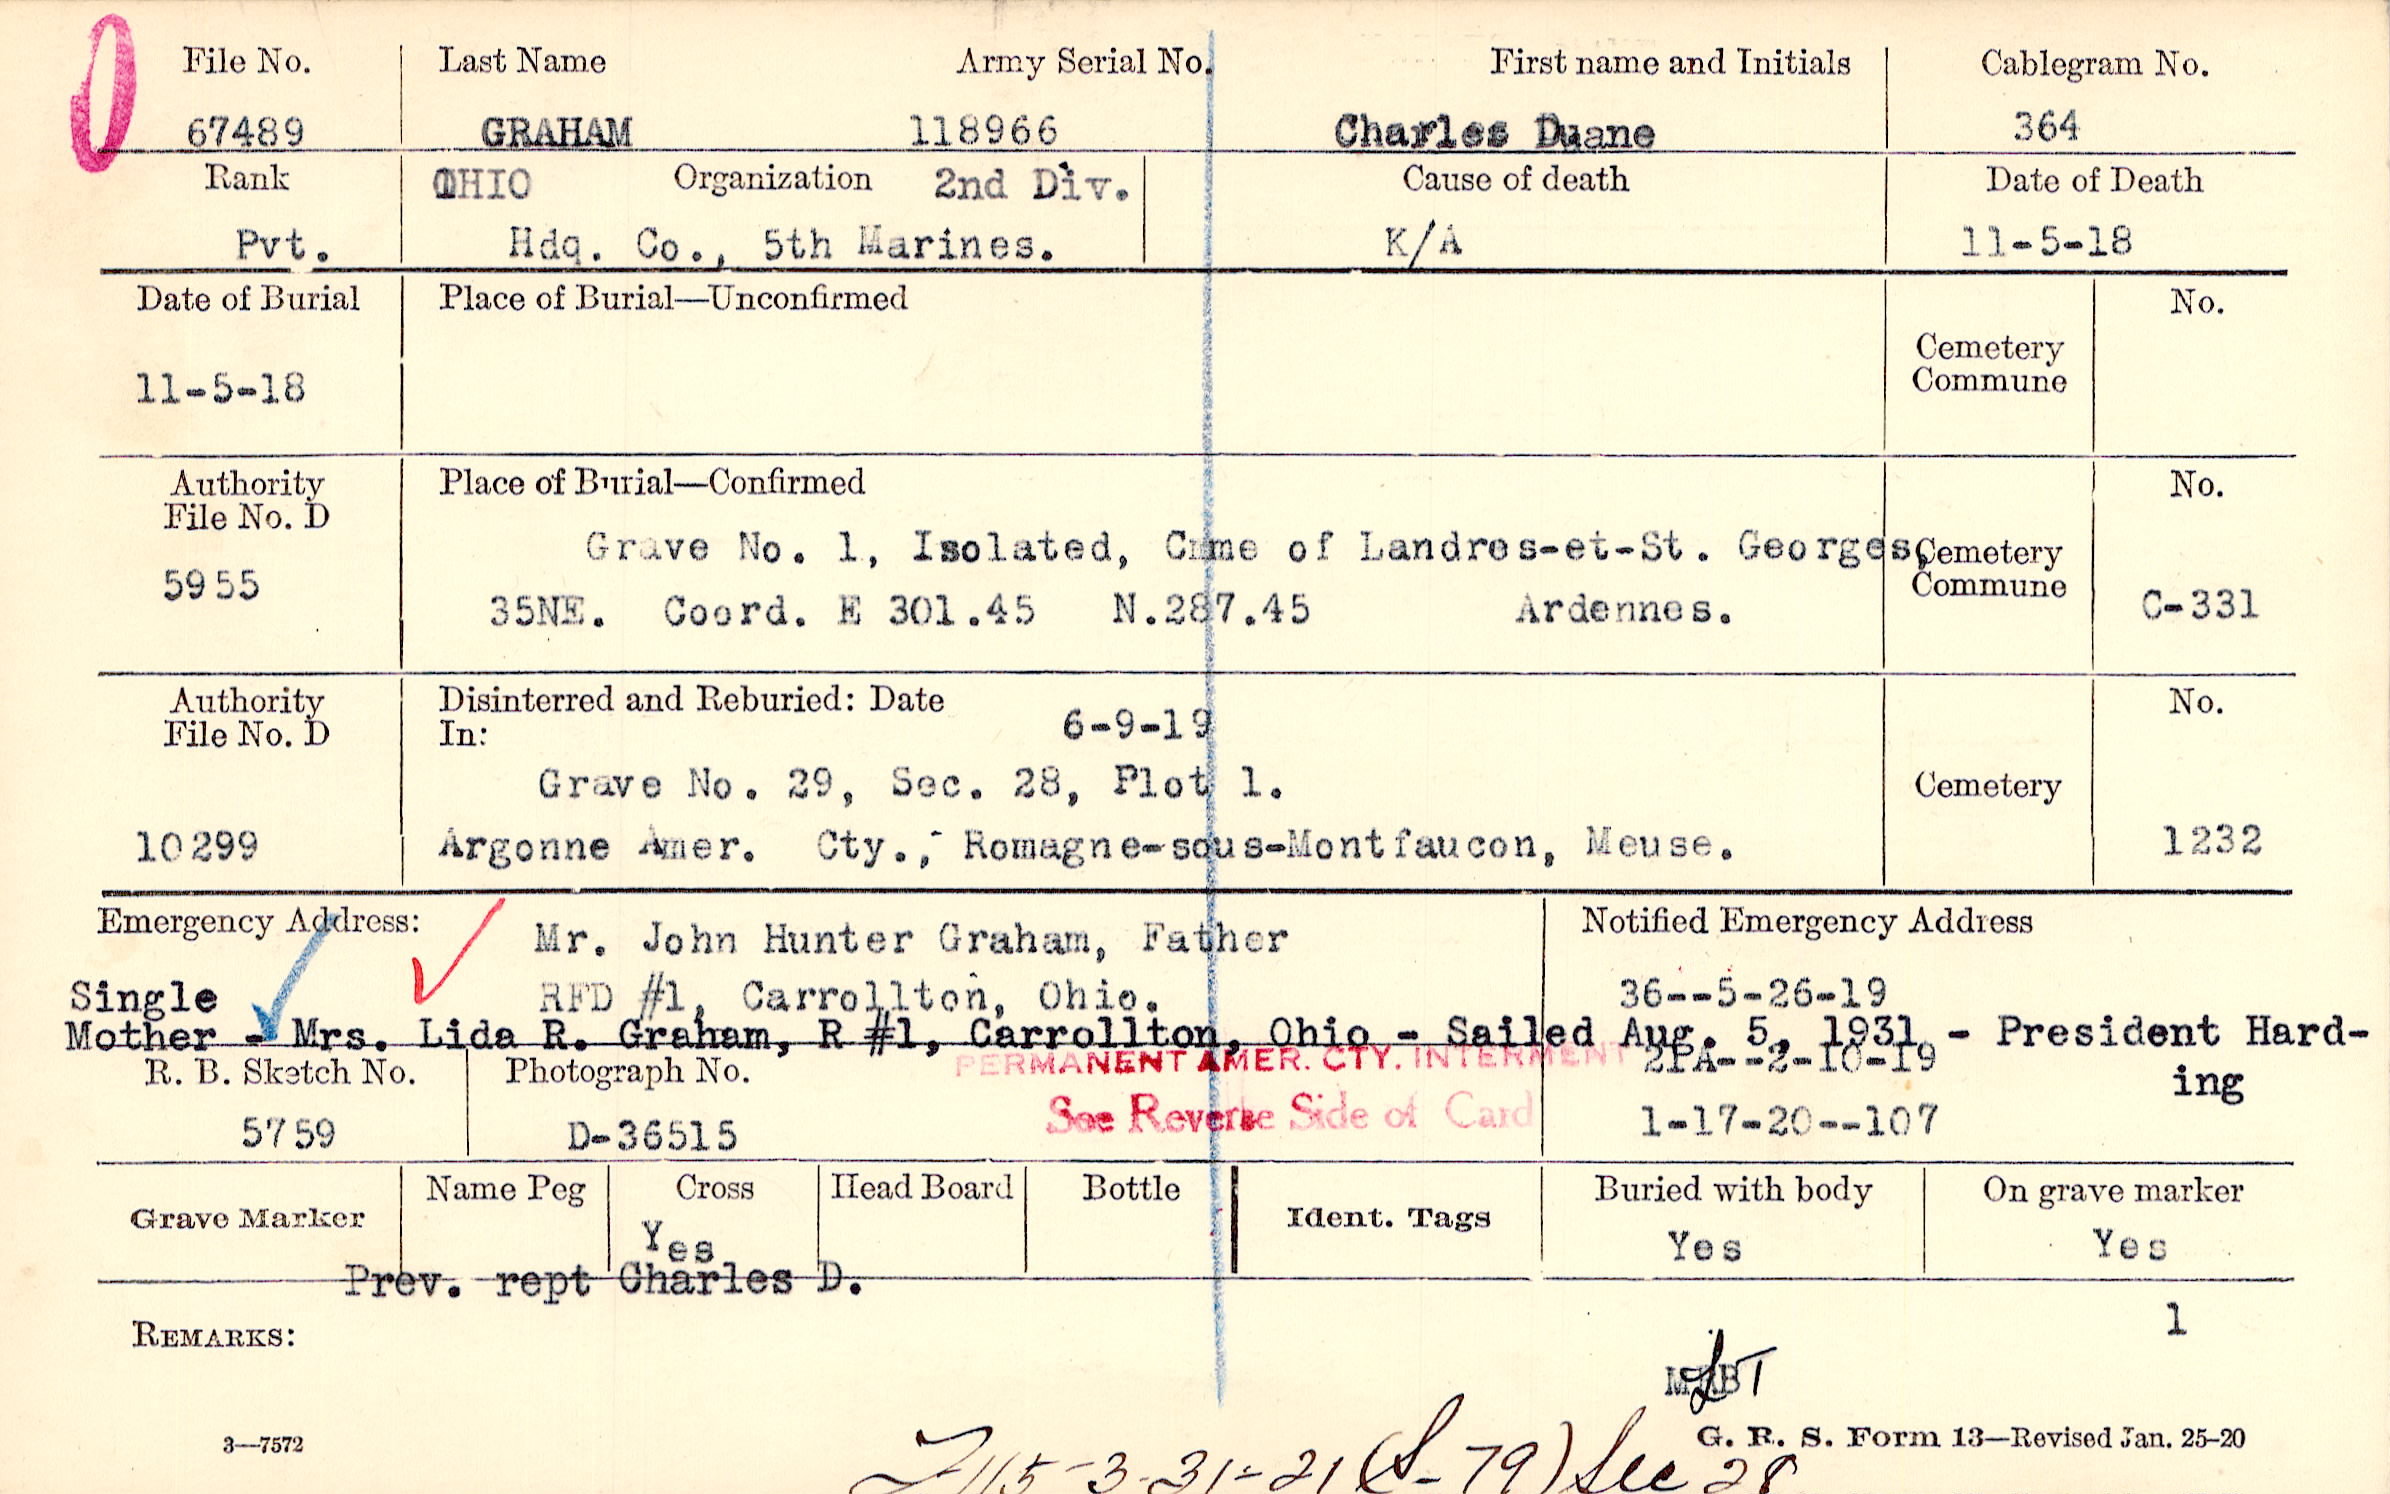 File No. Last Name Army Serial No. First name and Initials Cablegram No.
67489 GRAHAM 118966 Charles Duane 364
Rank OHIO Organization 2nd Div. Cause of death Date of Death
Pvt. Hdq. Co., 5th Marines. K/A 11-5-18
Date of Burial Place of Burial—Unconfirmed No.
Cemetery
Commune
11-5-18
Authority Place of Burial—Confirmed No.
File No. D
Grave No. 1, Isolated, Cmme of Landres-et-St. Georges, Cemetery
5955 Commune
35NE. Coord. E 301.45 N.287.45 Ardennes. C-331
Authority Disinterred and Reburied: Date No.
File No. D In: 6-9-19
Grave No. 29, Sec. 28, Plot 1. Cemetery
10299 Argonne Amer. Cty., Romagne-sous-Montfaucon, Meuse. 1232
Emergency Address: Mr. John Hunter Graham, Father Notified Emergency Address
Single RFD #1, Carrollton, Ohio. 36--5-26-19
Mother - Mrs. Lida R. Graham, R #1, Carrollton, Ohio - Sailed Aug. 5, 1931 - President Hard-
PERMANENT AMER. CTY. INTERMENT 2PA--2-10-19
R. B. Sketch No. Photograph No. ing
See Reverse Side of Card
5759 D-36515 1-17-20--107
Grave Marker Name Peg Cross Head Board Bottle Ident. Tags Buried with body On grave marker
Yes Yes Yes
Prev. rept Charles D.
1
REMARKS:
LT
3—7572 G. R. S. Form 13—Revised Jan. 25-20
3-31-21 (S-79) Sec 28